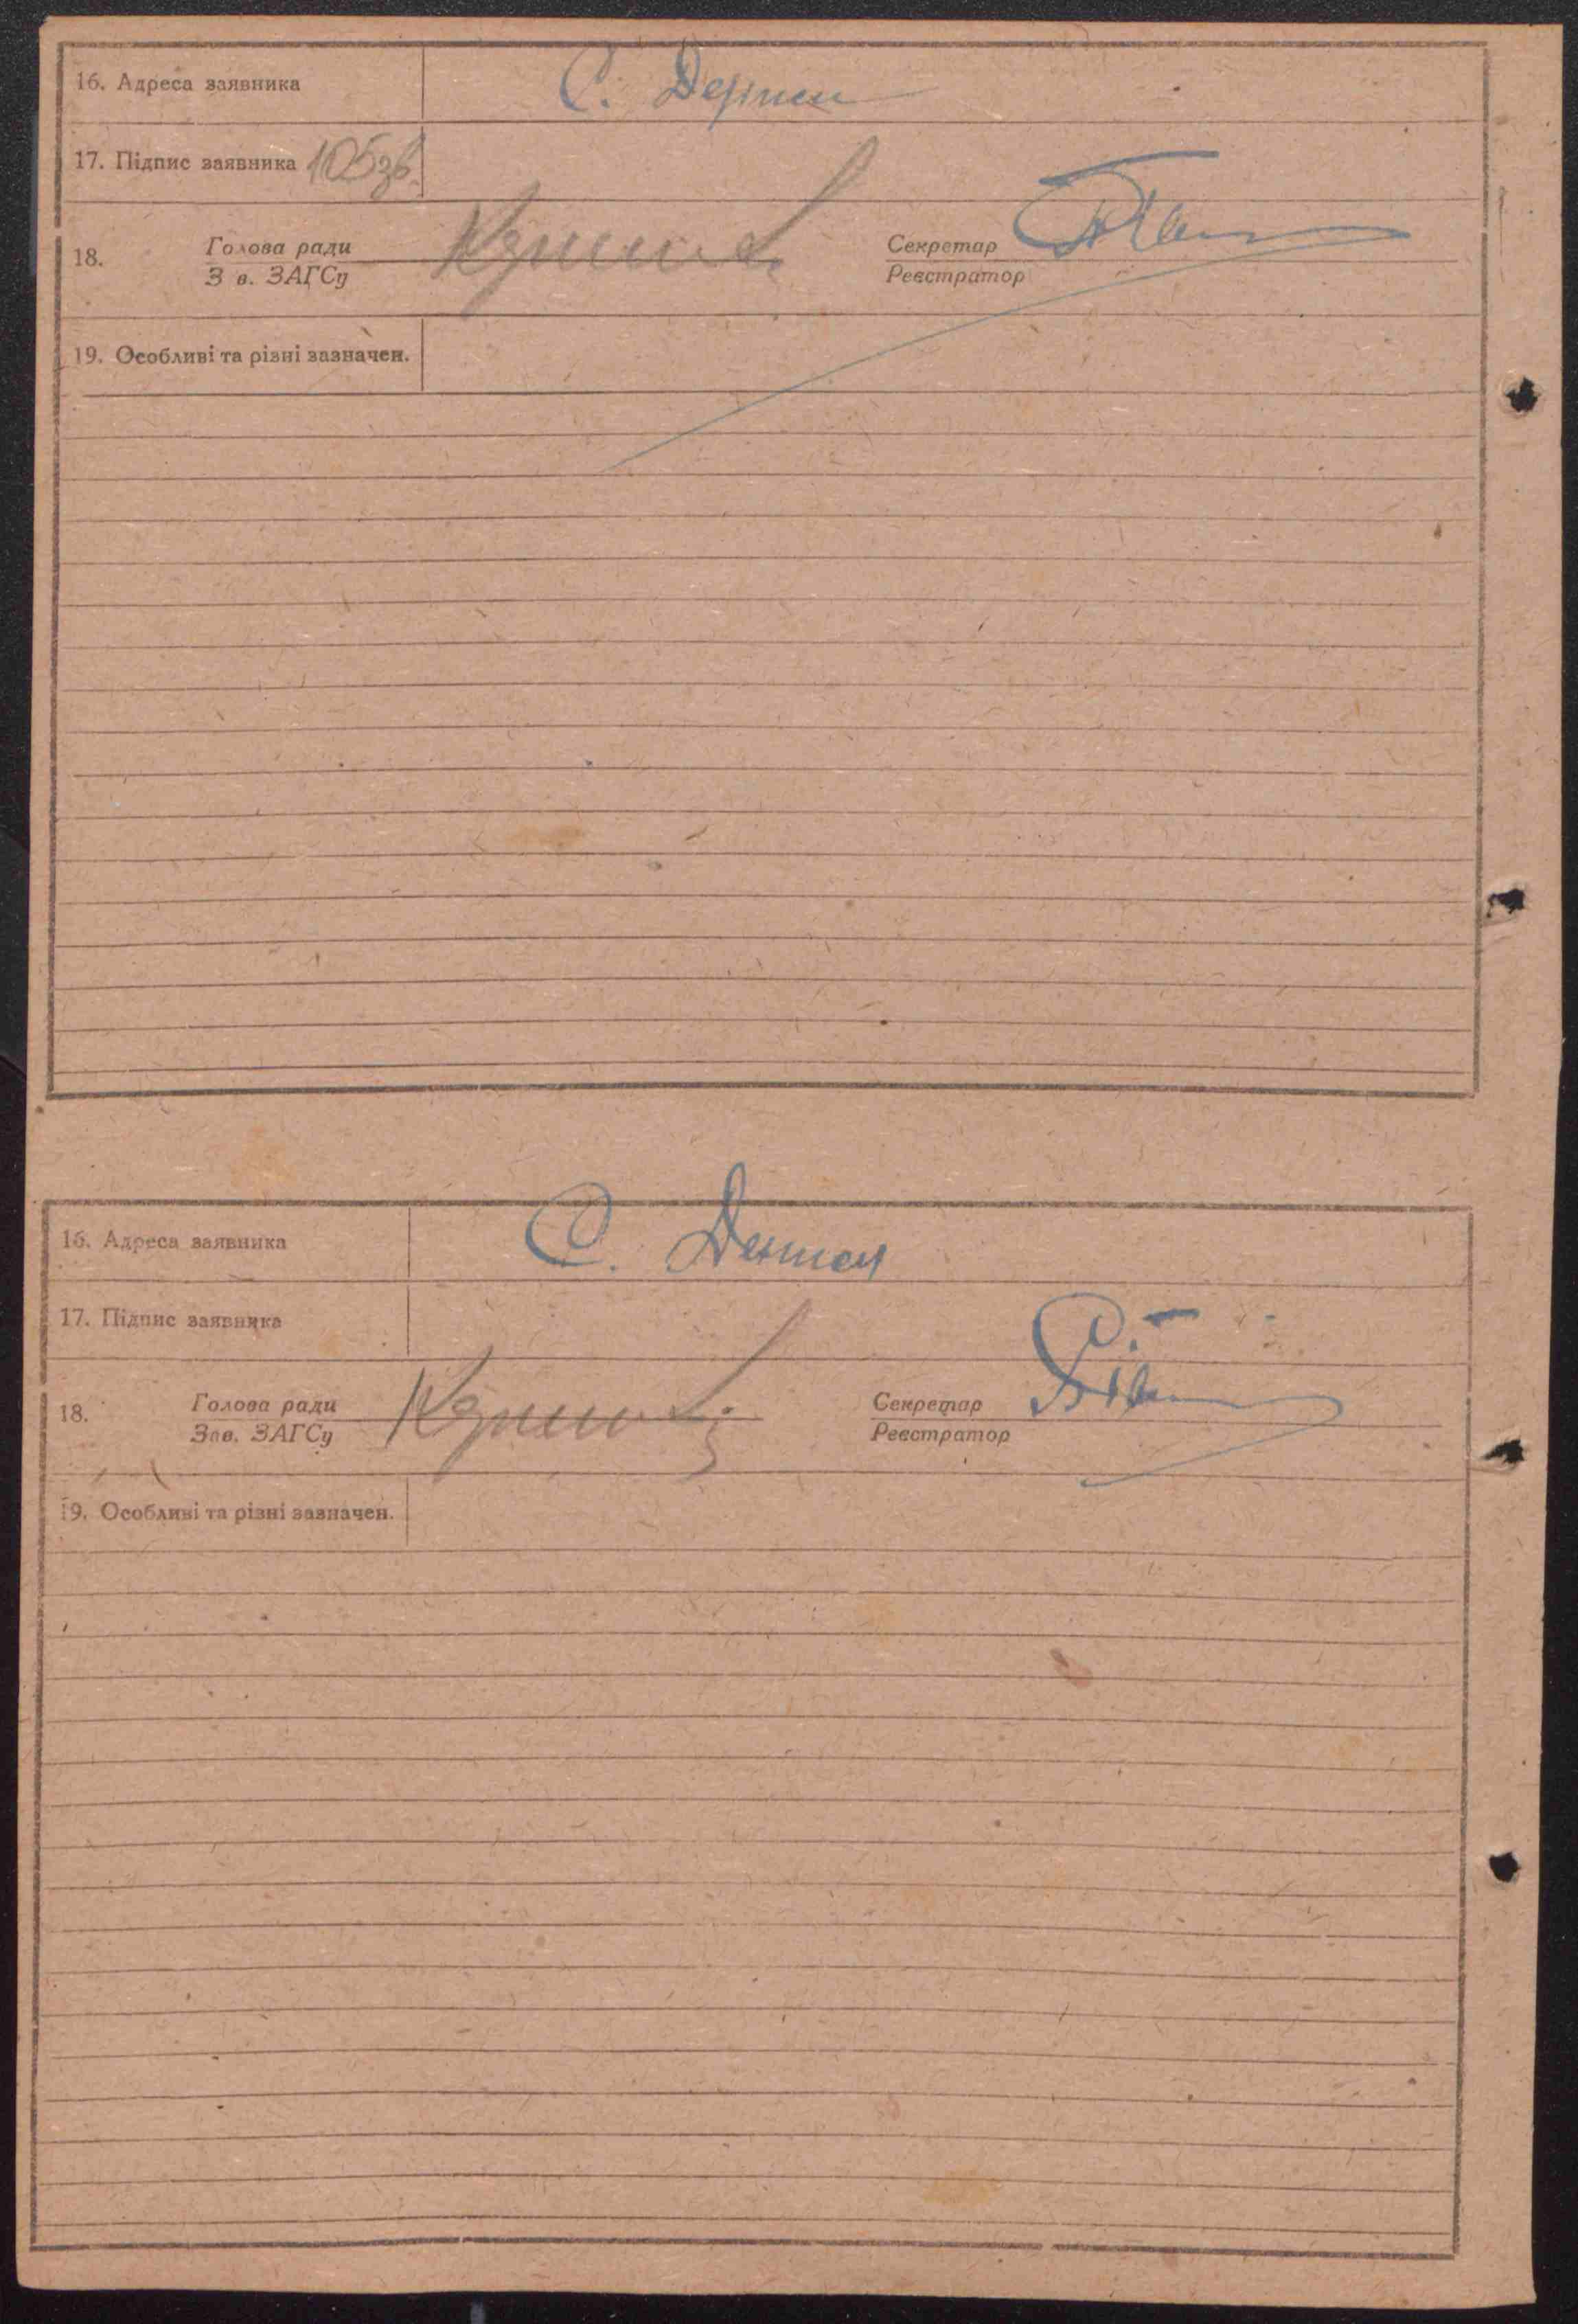 16. Адреса заявника С.
17. Підпис заявника 105зв.
18. Голова ради Секретар
З в. ЗАГСу Реєстратор
19. Особливі та різні зазначен.
16. Адреса заявника С.
17. Підпис заявника
18. Голова ради Секретар
Зав. ЗАГСу Реєстратор
19. Особливі та різні зазначен.